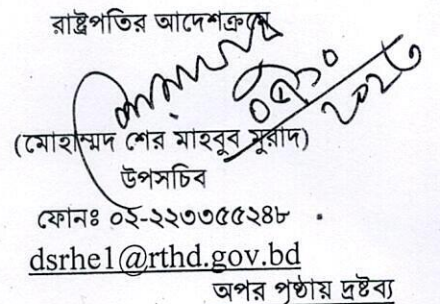 রাষ্ট্রপতির আদেশক্রমে
(মোহাম্মদ শের মাহবুব মুরাদ)
উপসচিব
ফোনঃ ০২-২২৩৩৫৫২৪৮
dsrhe1@rthd.gov.bd
অপর পৃষ্ঠায় দ্রষ্টব্য